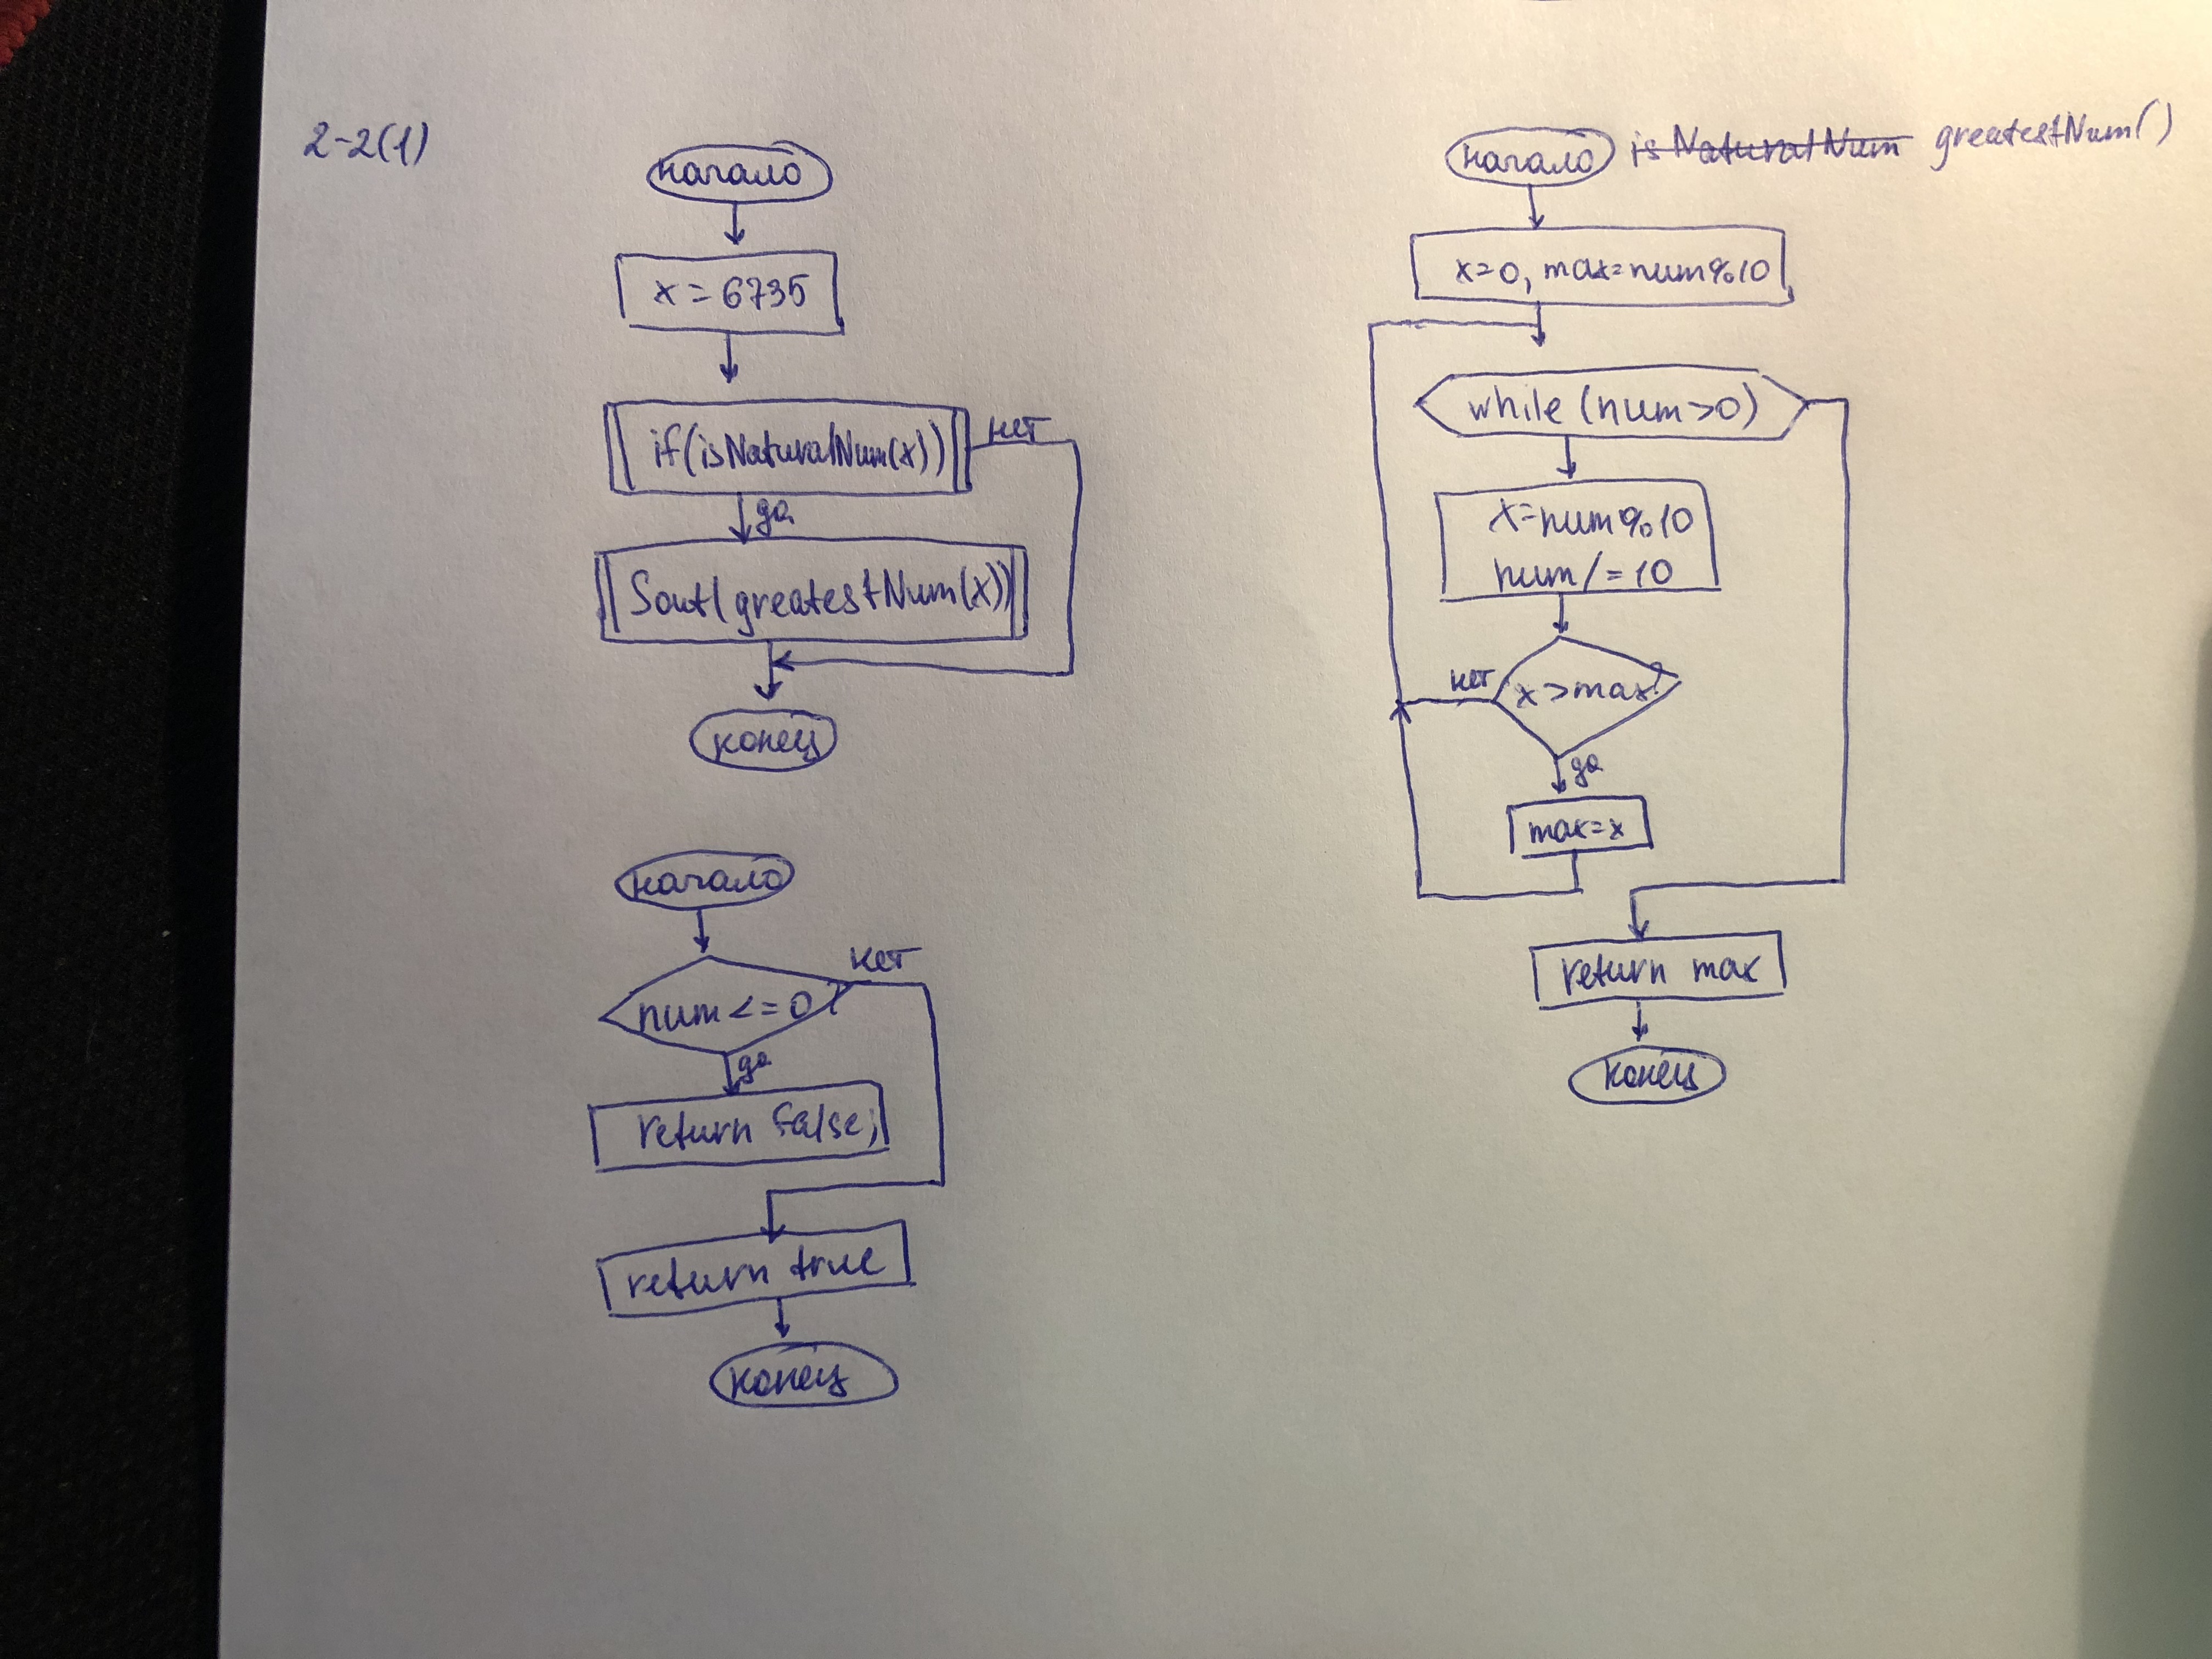 2-2(1)
начало
x=6735
if(isNaturalNum(x))
нет
да
Sout(greatestNum(x))
конец
начало
num<=0?
нет
да
return false;
return true
конец
начало isNaturalNum greatestNum()
x=0, max=num%10
while (num>0)
x=num%10
num/=10
x>max?
нет
да
max=x
return max
конец